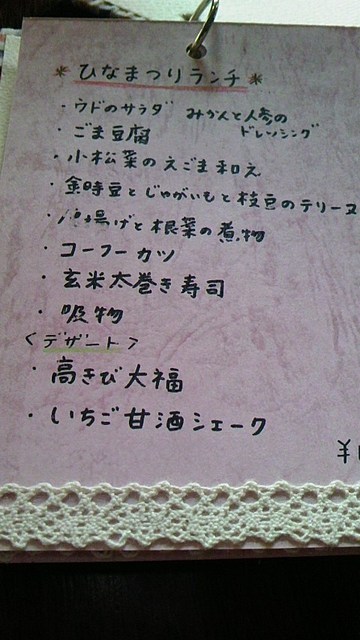 *ひなまつりランチ*
・ウドのサラダ みかんと人参の
ドレッシング
・ごま豆腐
・小松菜のえごま和え
・金時豆とじゃがいもと枝豆のテリーヌ
揚げと根菜の煮物
・コーフーカツ
・玄米太巻き寿司
・吸物
<デザート>
・高きび大福
・いちご甘酒シェーク
¥